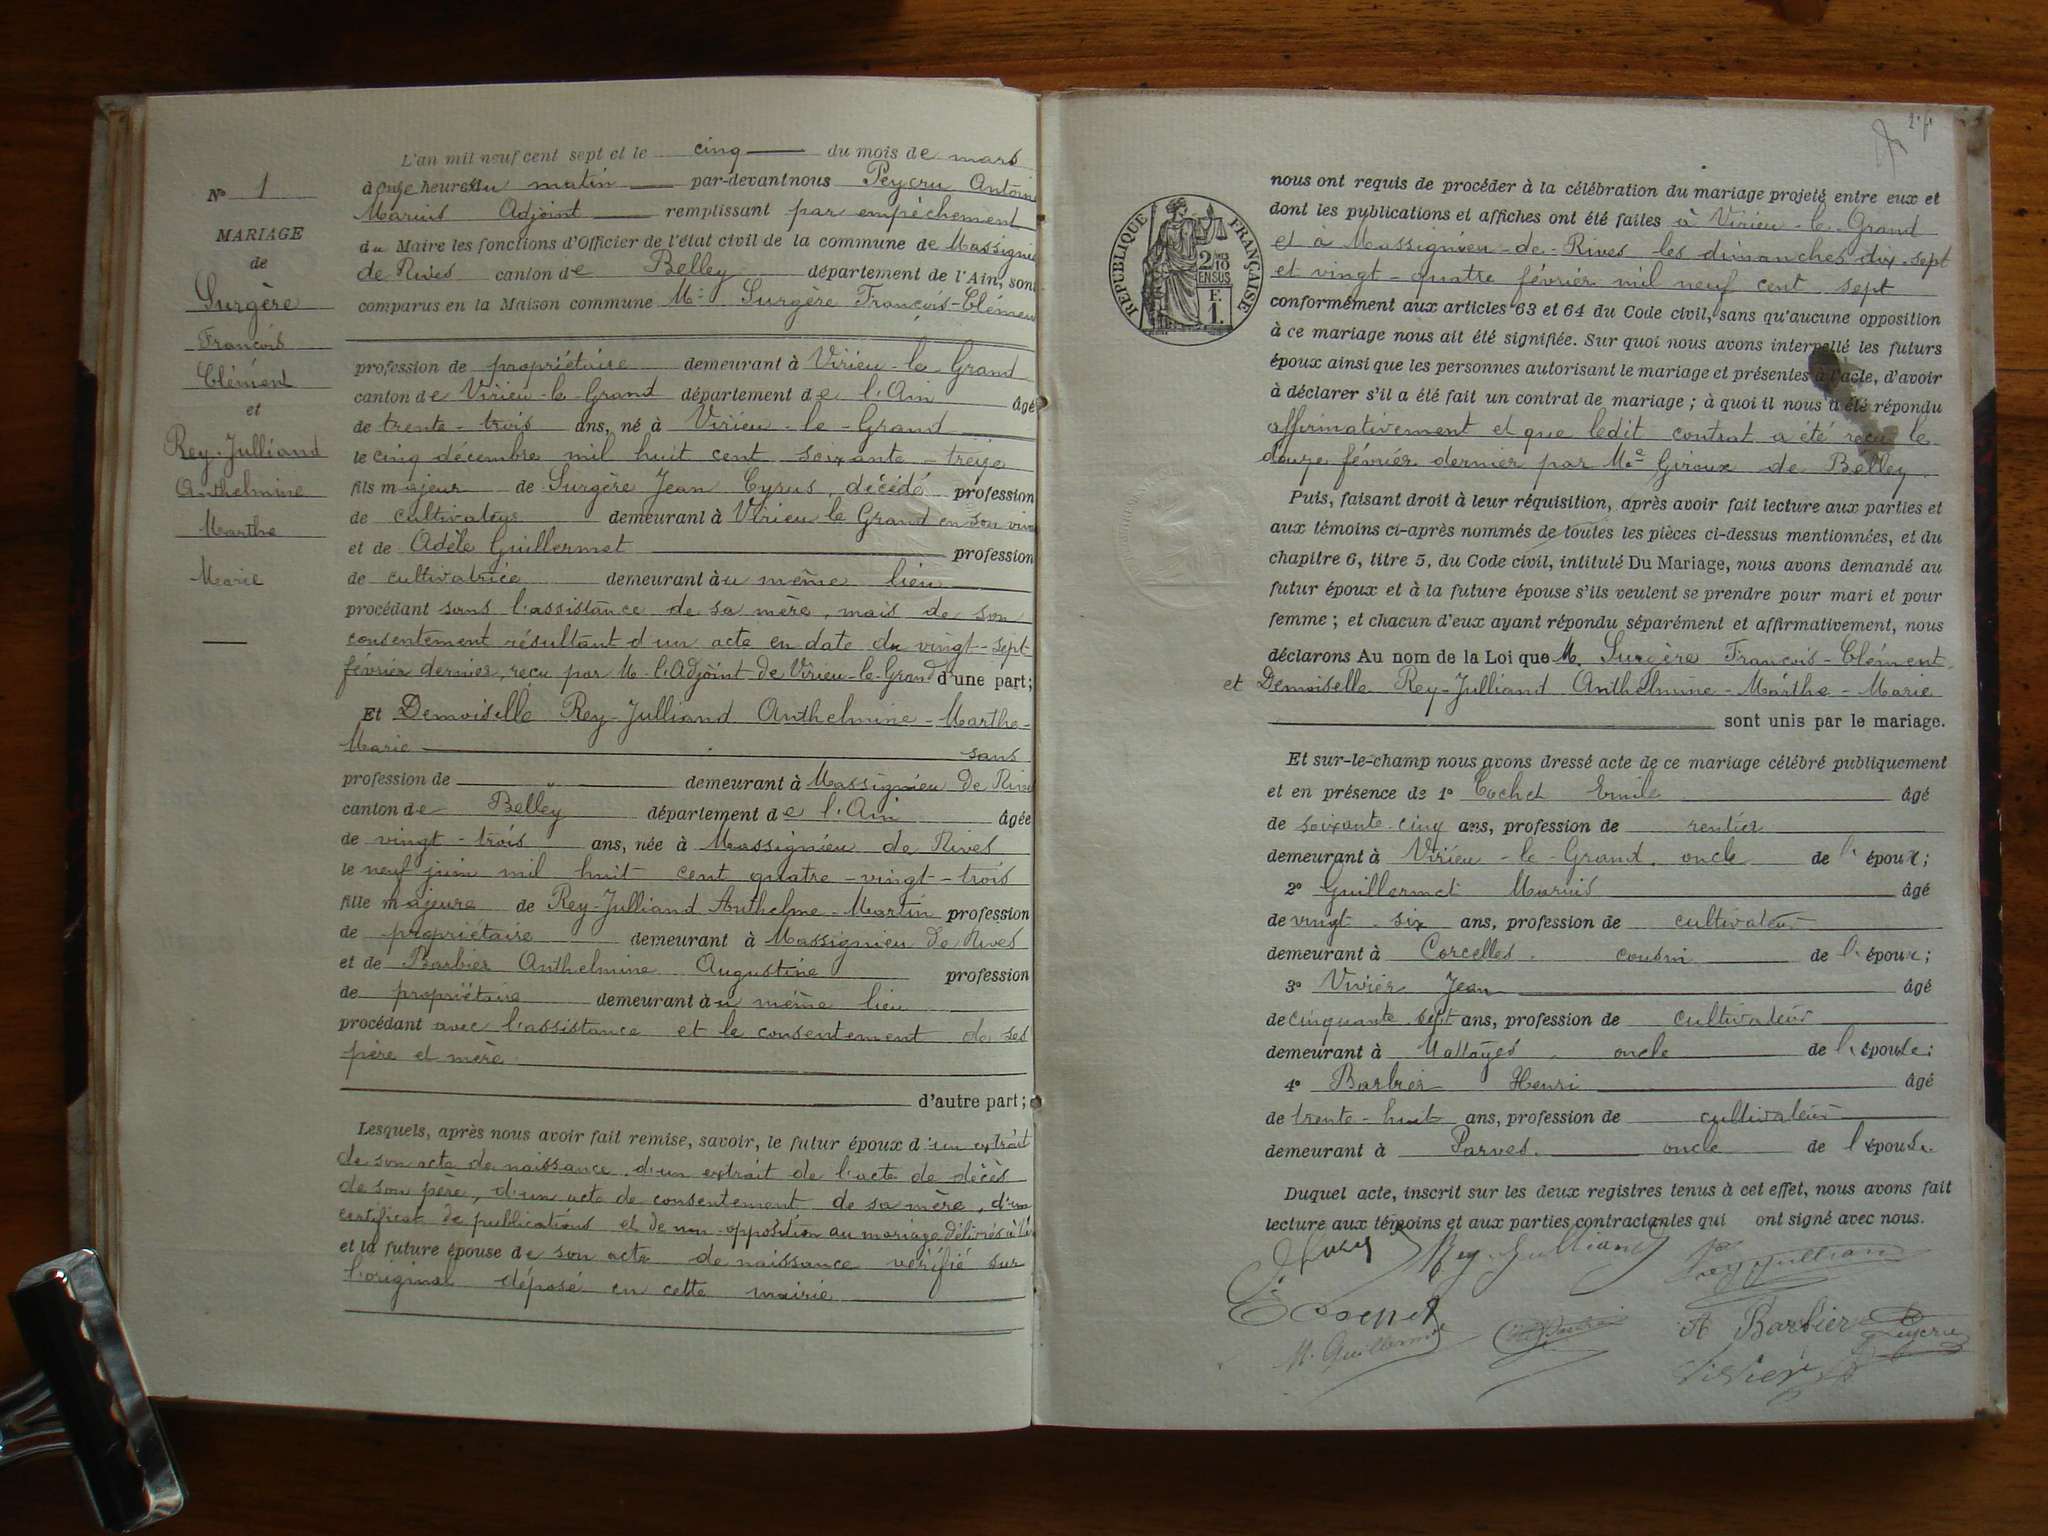 N° 1
MARIAGE
de
Surgère
François
Clément
et
Rey-Julliand
Anthelmine
Marthe
Marie
L'an mil neuf cent sept et le cinq du mois de mars
à onze heures du matin par-devant nous Peycru Antoine
Marius Adjoint remplissant par empêchement
du Maire les fonctions d'Officier de l'état civil de la commune de Massignieu
de Rives canton de Belley département de l'Ain, sont
comparus en la Maison commune Mr Surgère François-Clément
profession de propriétaire demeurant à Virieu-le-Grand
canton de Virieu-le-Grand département de l'Ain âgé
de trente-trois ans, né à Virieu-le-Grand
le cinq décembre mil huit cent soixante-treize
fils majeur de Surgère Jean Cyrus, décédé profession
de cultivateur demeurant à Virieu le Grand en son vivant
et de Adèle Guillermet profession
de cultivatrice demeurant au même lieu
procédant sans l'assistance de sa mère, mais de son
consentement résultant d'un acte en date du vingt-sept
février dernier, reçu par M. l'Adjoint de Virieu-le-Grand d'une part;
Et Demoiselle Rey-Julliand Anthelmine-Marthe-
Marie sans
profession de " demeurant à Massignieu de Rives
canton de Belley département de l'Ain âgée
de vingt-trois ans, née à Massignieu de Rives
le neuf juin mil huit cent quatre-vingt-trois
fille majeure de Rey-Julliand Anthelme-Martin profession
de propriétaire demeurant à Massignieu de Rives
et de Barbier Anthelmine Augustine profession
de propriétaire demeurant au même lieu
procédant avec l'assistance et le consentement de ses
père et mère
d'autre part;
Lesquels, après nous avoir fait remise, savoir, le futur époux d'un extrait
de son acte de naissance, d'un extrait de l'acte de décès
de son père, d'un acte de consentement de sa mère, d'un
certificat de publications et de non-opposition au mariage délivrés à
et la future épouse de son acte de naissance vérifié sur
l'original déposé en cette mairie
RÉPUBLIQUE FRANÇAISE
2/10
EN SUS
F.
1.
nous ont requis de procéder à la célébration du mariage projeté entre eux et
dont les publications et affiches ont été faites à Virieu-le-Grand
et à Massignieu-de-Rives les dimanches dix-sept
et vingt-quatre février mil neuf cent sept
conformément aux articles 63 et 64 du Code civil, sans qu'aucune opposition
à ce mariage nous ait été signifiée. Sur quoi nous avons interpellé les futurs
époux ainsi que les personnes autorisant le mariage et présentes à l'acte, d'avoir
à déclarer s'il a été fait un contrat de mariage; à quoi il nous a été répondu
affirmativement et que ledit contrat a été reçu le
douze février dernier par Me Giroux de Belley
Puis, faisant droit à leur réquisition, après avoir fait lecture aux parties et
aux témoins ci-après nommés de toutes les pièces ci-dessus mentionnées, et du
chapitre 6, titre 5, du Code civil, intitulé Du Mariage, nous avons demandé au
futur époux et à la future épouse s'ils veulent se prendre pour mari et pour
femme; et chacun d'eux ayant répondu séparément et affirmativement, nous
déclarons Au nom de la Loi que M. Surgère François-Clément
et Demoiselle Rey-Julliand Anthelmine-Marthe-Marie
sont unis par le mariage.
Et sur-le-champ nous avons dressé acte de ce mariage célébré publiquement
et en présence de 1° Cochet Emile âgé
de soixante-cinq ans, profession de rentier
demeurant à Virieu-le-Grand, oncle de l'époux;
2° Guillermet Marius âgé
de vingt-six ans, profession de cultivateur
demeurant à Corcelles, cousin de l'époux;
3° Vivier Jean âgé
de cinquante-sept ans, profession de cultivateur
demeurant à oncle de l'épouse;
4° Barbier Henri âgé
de trente-huit ans, profession de cultivateur
demeurant à Parves, oncle de l'épouse.
Duquel acte, inscrit sur les deux registres tenus à cet effet, nous avons fait
lecture aux témoins et aux parties contractantes qui ont signé avec nous.
Rey-Julliand
Rey Julliand
E Cochet
A Barbier
Peycru
M. Guillermet
Vivier